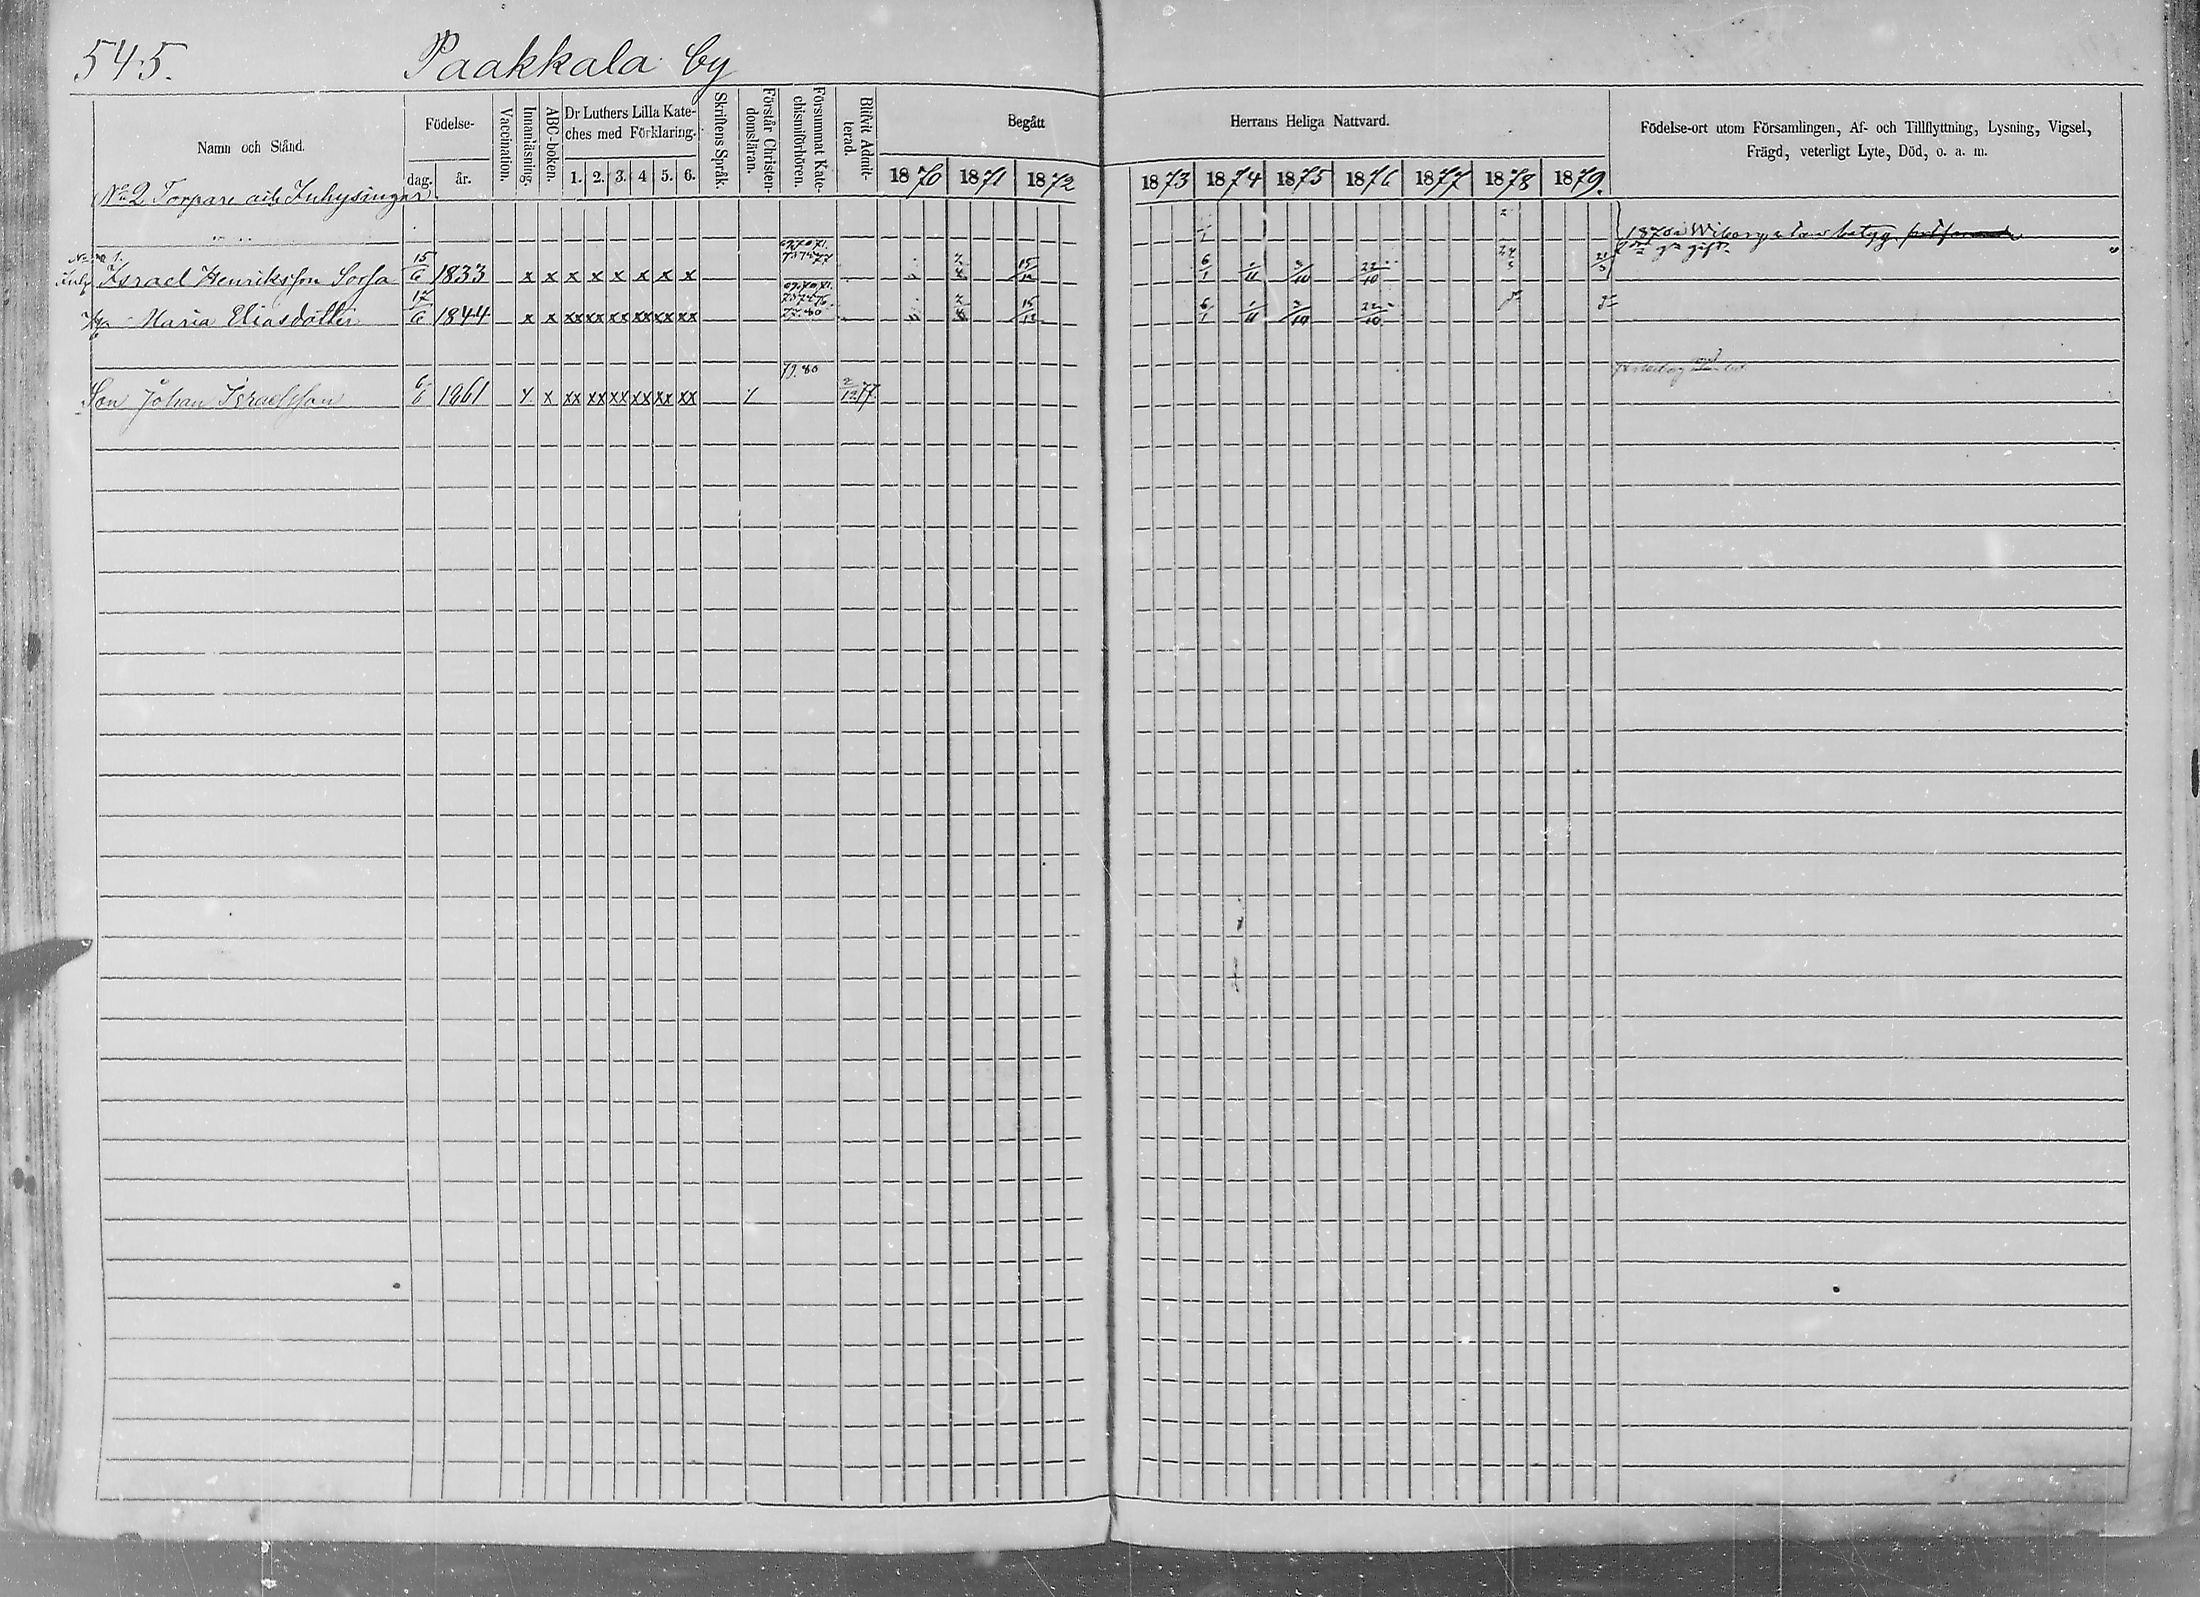 545. Paakkala by
Namn och Stånd.
Födelse-
dag.
år.
Vaccination.
Innanläsning.
ABC-boken.
Dr Luthers Lilla Kate-
ches med Förklaring.
1. 2. 3. 4 5. 6.
Skriftens Språk.
Förstår Christen-
domsläran.
Försummat Kate-
chismiförhören.
Blifvit Admit-
terad.
Begått
1870 1871 1872
Herrans Heliga Nattvard.
1873 1874 1875 1876 1877 1878 1879.
Födelse-ort utom Församlingen, Af- och Tillflyttning, Lysning, Vigsel,
Frägd, veterligt Lyte, Död, o. a. m.
No 2 Torpare och Inhysingar
Israel Henriksson Sorsa 15/6 1833 x x x x x x x x 15/12 6/1 22/10
Maria Eliasdotter 17/6 1844 x x xx xx xx xx xx xx 77.80 15/12 6/1 22/10
Son Johan Israelsson 6/6 1861 x x xx xx xx xx xx xx x 79.80 2/12 77